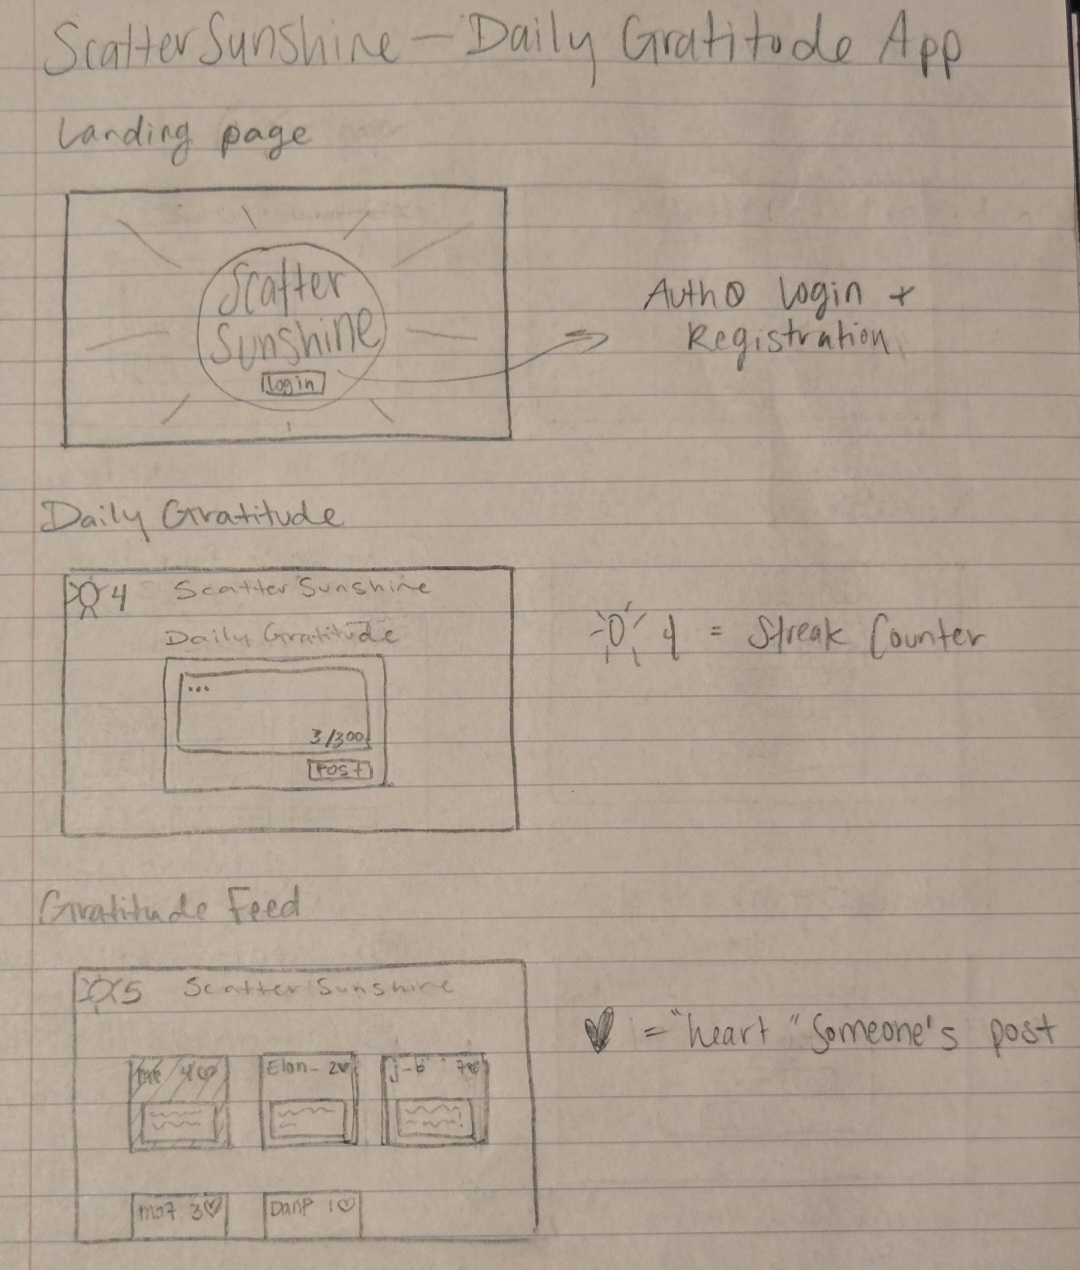 ScatterSunshine — Daily Gratitude App
Landing page
Scatter
Sunshine
Login
Auth0 Login +
Registration
Daily Gratitude
4 ScatterSunshine
Daily Gratitude
...
3/300
POST
4 = Streak Counter
Gratitude Feed
5 ScatterSunshine
4♡ Elon_ 2♥ j-b 7♥
♥ = "heart" Someone's post
mo7 3♡ DanP 1♡